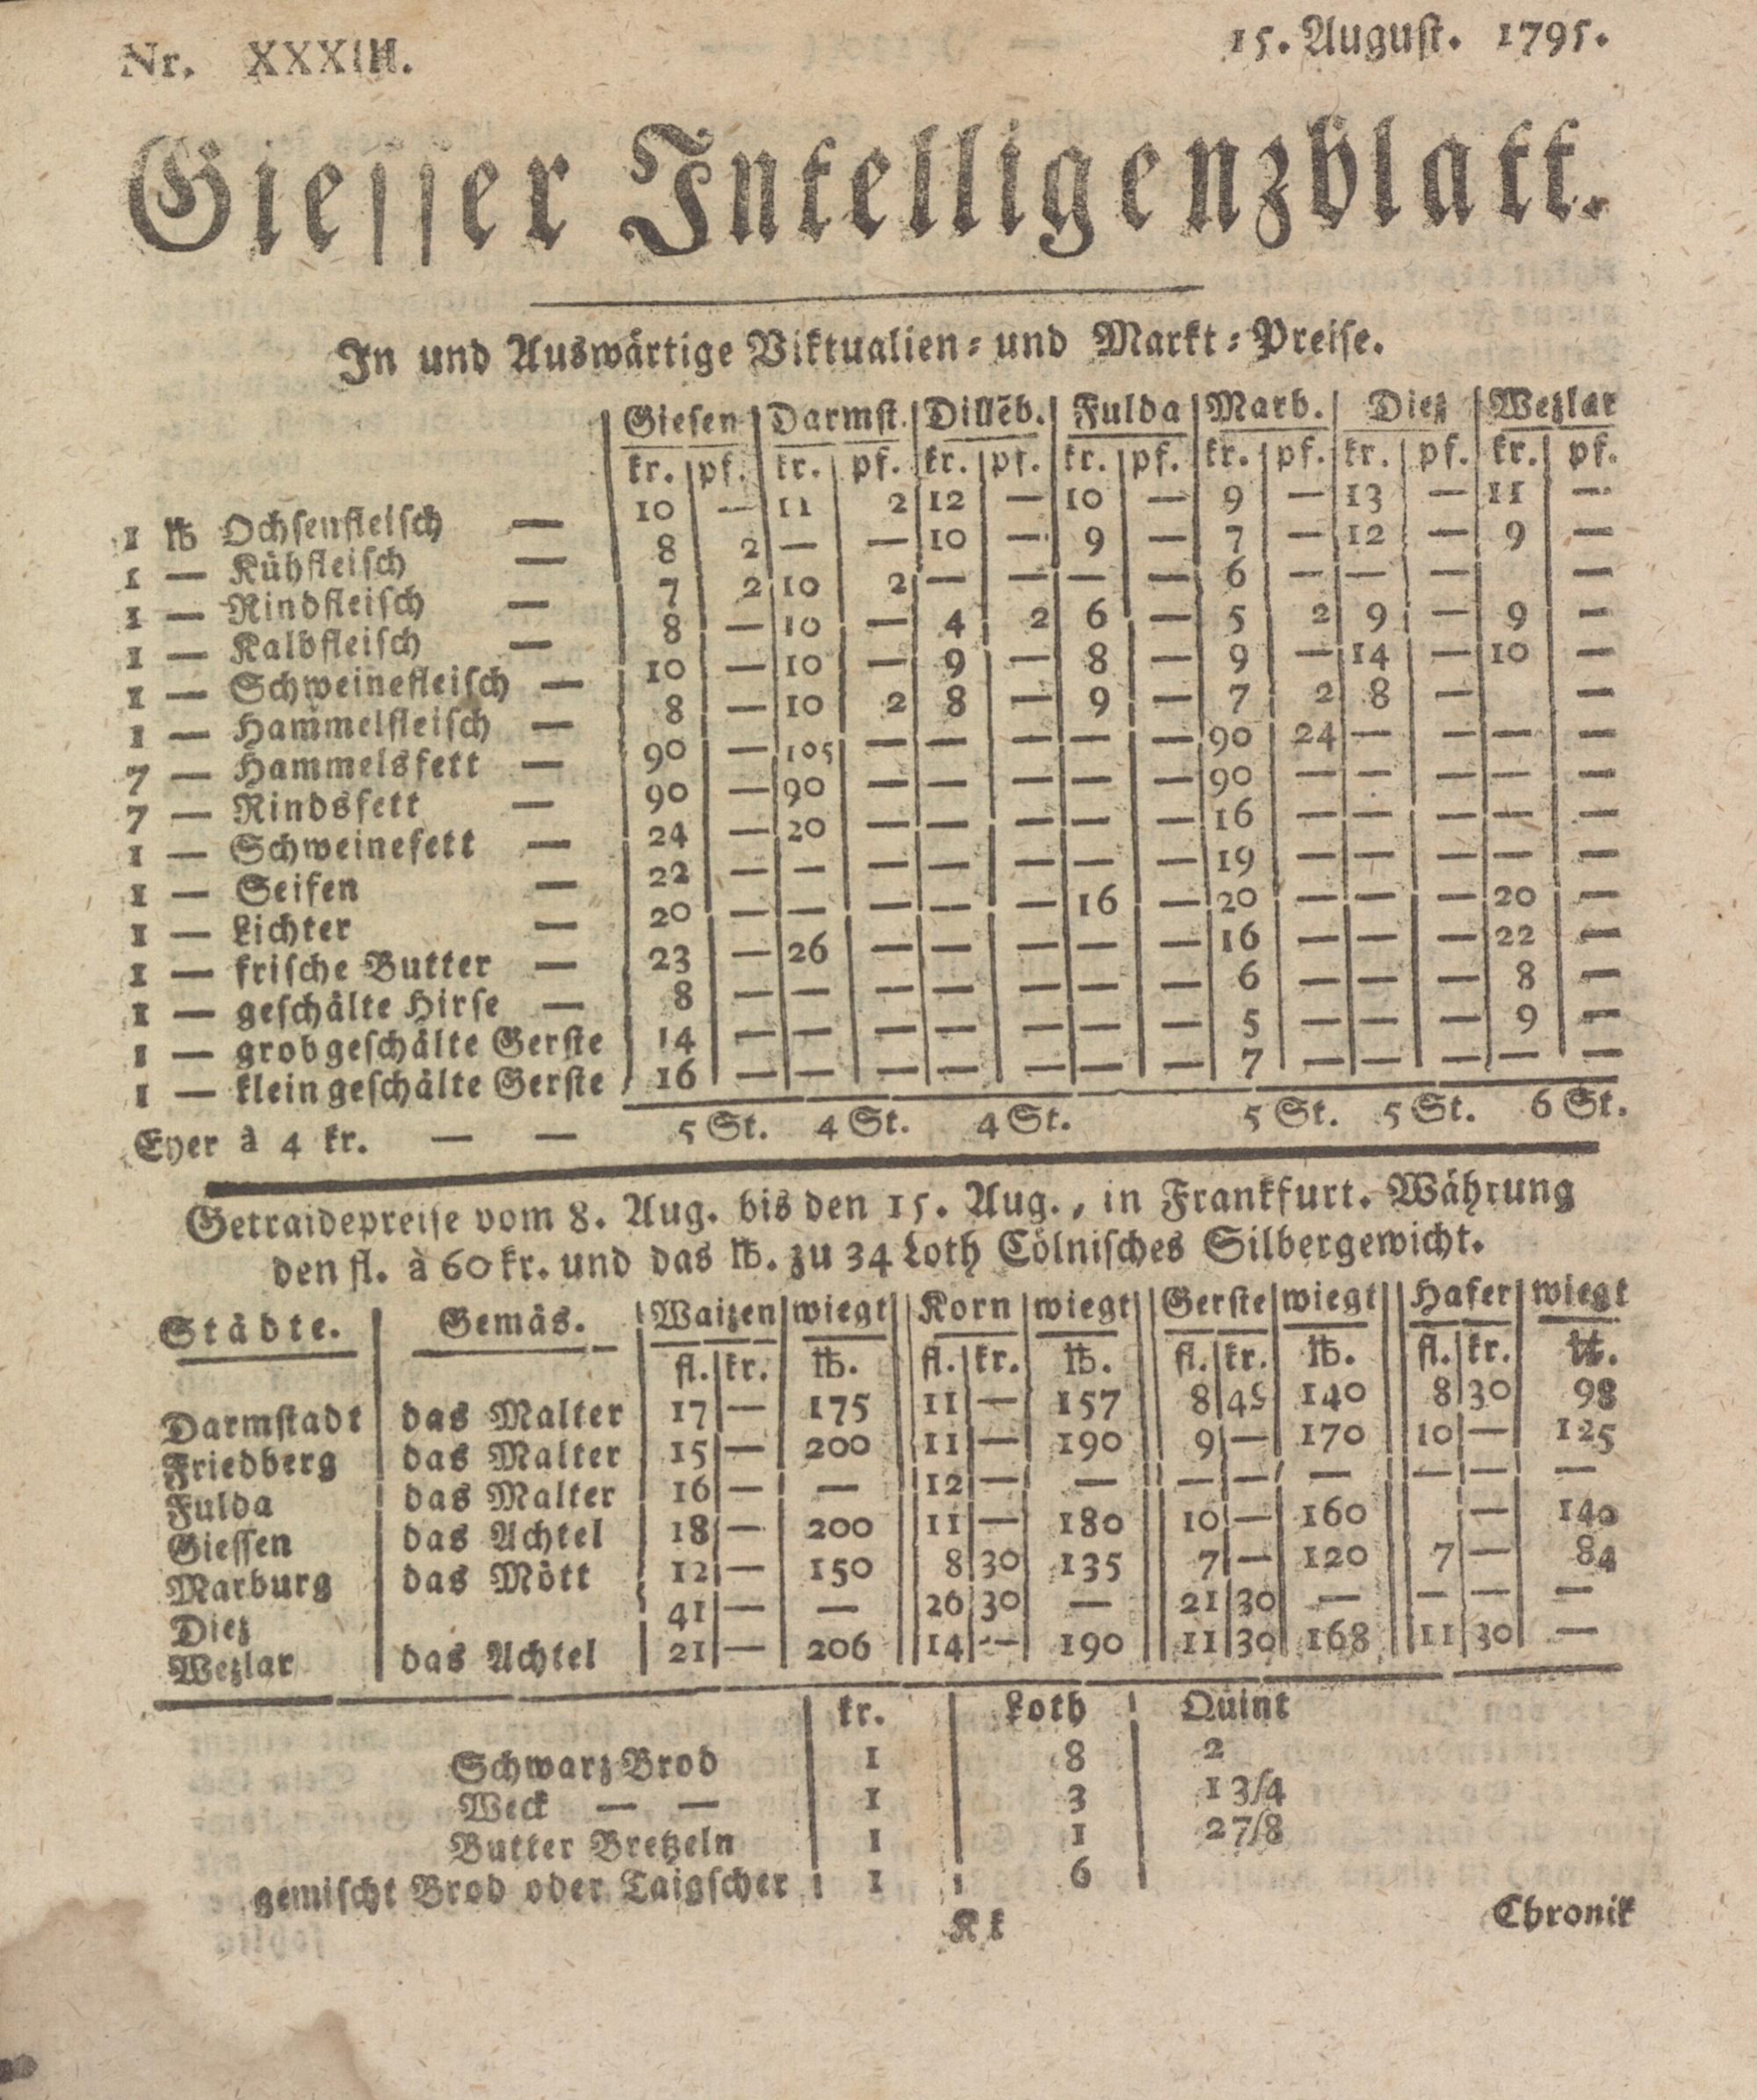 Nr. XXXIII. 15. Auguſt. 1795.
Gieſſer Intelligenzblatt.
In und Auswärtige Viktualien- und Markt-Preiſe.
Gieſen Darmſt. Dillēb. Fulda Marb. Diez Wezlar
kr. pf. kr. pf. kr. pf. kr. pf. kr. pf. kr. pf. kr. pf.
1 ℔ Ochſenfleiſch — 10 — 11 2 12 — 10 — 9 — 13 — 11 —
1 — Kühfleiſch — 8 2 — — 10 — 9 — 7 — 12 — 9 —
1 — Rindfleiſch — 7 2 10 2 — — — — 6 — — — —
1 — Kalbfleiſch — 8 — 10 — 4 2 6 — 5 2 9 — 9 —
1 — Schweinefleiſch — 10 — 10 — 9 — 8 — 9 — 14 — 10 —
1 — Hammelfleiſch — 8 — 10 2 8 — 9 — 7 2 8 — —
7 — Hammelsfett — 90 — 105 — — — — — 90 24 — — — —
7 — Rindsfett — 90 — 90 — — — — — 90 — — — — —
1 — Schweinefett — 24 — 20 — — — — — 16 — — — — —
1 — Seifen — 22 — — — — — — — 19 — — — — —
1 — Lichter — 20 — — — — — 16 — 20 — — — 20 —
1 — friſche Butter — 23 — 26 — — — — — 16 — — — 22 —
1 — geſchälte Hirſe — 8 — — — — — — — 6 — — — 8 —
1 — grobgeſchälte Gerſte 14 — — — — — — — 5 — — — 9 —
1 — klein geſchälte Gerſte 16 — — — — — — — 7 — — — — —
Eyer à 4 kr. — — 5 St. 4 St. 4 St. 5 St. 5 St. 6 St.
Getraidepreiſe vom 8. Aug. bis den 15. Aug., in Frankfurt. Währung
den fl. à 60 kr. und das ℔. zu 34 Loth Cölniſches Silbergewicht.
Städte. Gemäs. Waizen wiegt Korn wiegt Gerſte wiegt Hafer wiegt
fl. kr. ℔. fl. kr. ℔. fl. kr. ℔. fl. kr. ℔.
Darmſtadt das Malter 17 — 175 11 — 157 8 45 140 8 30 98
Friedberg das Malter 15 — 200 11 — 190 9 — 170 10 — 125
Fulda das Malter 16 — — 12 — — — — — — — —
Gieſſen das Achtel 18 — 200 11 — 180 10 — 160 — 140
Marburg das Mött 12 — 150 8 30 135 7 — 120 7 — 84
Diez 41 — — 26 30 — 21 30 — — — —
Wezlar das Achtel 21 — 206 14 — 190 11 30 168 11 30 —
kr. Loth Quint
Schwarz Brod 1 8 2
Weck — — 1 3 1 3/4
Butter Bretzeln 1 1 2 7/8
gemiſcht Brod oder Taigſcher 1 6
K k
Chronik